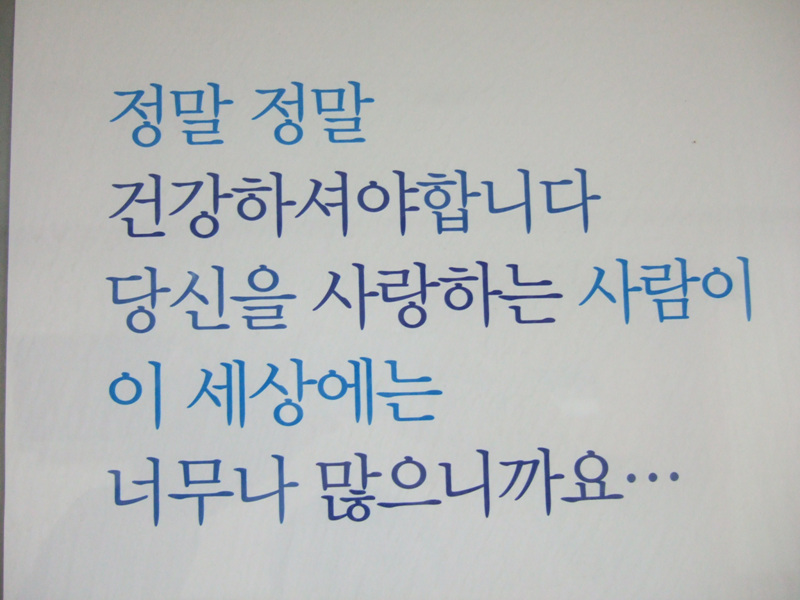 정말 정말
건강하셔야합니다
당신을 사랑하는 사람이
이 세상에는
너무나 많으니까요…